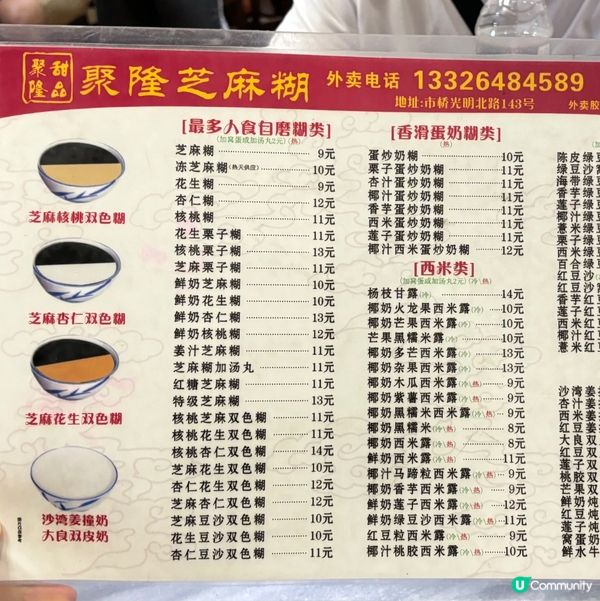 聚隆
甜品
聚隆芝麻糊
外卖电话 13326484589
地址:市桥光明北路143号
外卖胶
[最多人食自磨糊类]
(加窝蛋或加汤丸2元) (热)
芝麻糊 9元
冻芝麻糊(热天供应) 10元
花生糊 9元
杏仁糊 12元
核桃糊 11元
花生栗子糊 11元
核桃栗子糊 13元
芝麻栗子糊 11元
鲜奶芝麻糊 11元
鲜奶花生糊 10元
鲜奶杏仁糊 13元
鲜奶核桃糊 12元
姜汁芝麻糊 11元
芝麻糊加汤丸 11元
红糖芝麻糊 11元
特级芝麻糊 13元
核桃芝麻双色糊 11元
核桃花生双色糊 11元
核桃杏仁双色糊 14元
芝麻花生双色糊 10元
杏仁花生双色糊 12元
芝麻杏仁双色糊 12元
芝麻豆沙双色糊 10元
花生豆沙双色糊 10元
杏仁豆沙双色糊 11元
[香滑蛋奶糊类]
(热)
蛋炒奶糊 10元
栗子蛋炒奶糊 11元
杏汁蛋炒奶糊 11元
椰汁蛋炒奶糊 11元
香芋蛋炒奶糊 11元
西米蛋炒奶糊 11元
莲子蛋炒奶糊 11元
椰汁西米蛋炒奶糊 12元
[西米类]
(加窝蛋或加汤丸2元) (冷\热)
杨枝甘露(冷) 14元
椰奶火龙果西米露(冷) 10元
椰奶芒果西米露(冷) 10元
芒果黑糯米露(冷) 13元
椰奶多芒西米露(冷) 13元
椰奶杂果西米露(冷) 13元
椰奶木瓜西米露(冷\热) 9元
椰奶紫薯西米露(冷\热) 9元
椰奶黑糯米西米露(冷\热) 9元
椰奶黑糯米露(冷\热) 8元
椰奶西米露(冷\热) 8元
鲜奶西米露(冷\热) 11元
椰汁马蹄粒西米露(冷\热) 9元
椰奶香芋西米露(冷\热) 9元
鲜奶绿豆沙西米露(冷\热) 11元
红豆粒西米露(冷\热) 9元
椰汁桃胶西米露(冷\热) 10元
陈皮绿豆
绿豆沙
海带绿豆
香芋绿豆
莲子绿豆
椰汁绿豆
薏米绿豆
栗子绿豆
西米绿豆
百合绿豆
红豆沙
红豆沙
香芋红豆
莲子红豆
椰汁红豆
西米红豆
薏米红豆
沙湾姜
杏汁姜
西米姜
红豆姜
大良双
红豆双
莲子双
桃胶双
芒果双
红豆炖
鲜奶炖
莲子炖
窝蛋奶
鲜水牛
芝麻核桃双色糊
芝麻杏仁双色糊
芝麻花生双色糊
沙湾姜撞奶
大良双皮奶
U Community